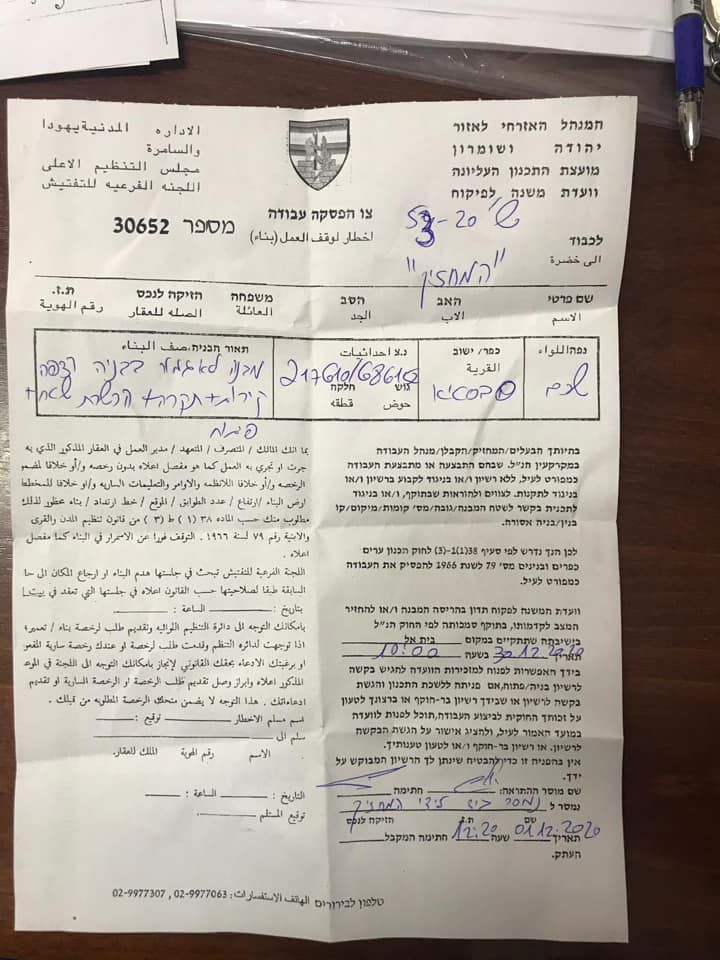 המנהל האזרחי לאזור
יהודה ושומרון
מועצת התכנון העליונה
וועדת משנה לפיקוח
الاداره المدنية يهودا
والسامرة
مجلس التنظيم الاعلى
اللجنه الفرعيه للتفتيش
צו הפסקה עבודה
اخطار لوقف العمل (بناء)
מספר 30652
לכבוד
الى حضرة
"המחזיק"
שם פרטי האב הסב משפחה הזיקה לנכס ת.ז.
الاسم الاب الجد العائلة الصله للعقار رقم الهوية
נפה اللواء
שכם
כפר/ישוב
القرية
סבסטיא
נ.צ احداثيات
גוש חלקה
حوض قطقه
תאור הבניה: صف البناء
מבנה לא גמור בבניה רצפה
קירות + תקרה +
בהיותך הבעלים/המחזיק/הקבלן/מנהל העבודה
במקרקעין הנ"ל. שבהם התבצעה או מתבצעת העבודה
כמפורט לעיל, ללא רשיון או בניגוד לקבוע ברשיון ו/או
בניגוד לתקנות. לצווים ולהוראות שבתוקף, ו/או בניגוד
לתכנית בקשר לשטח המבנה/גובה/מס' קומות/מיקום/קו
בנין/בניה אסורה.
לכן הנך נדרש לפי סעיף 38(1)-3) לחוק תכנון ערים
כפרים ובנינים מס' 79 לשנת 1966 להפסיק את העבודה
כמפורט לעיל.
וועדת המשנה לפקוח תדון בהריסת המבנה ו/או להחזיר
המצב לקדמותו, בתוקף סמכותה לפי החוק הנ"ל
בישיבתה שתתקיים במקום בית אל
תאריך 30.12.2020 בשעה 10:00
בידך האפשרות לפנות למזכירות הוועדה להגיש בקשה
לרשיון בניה/פתוח, אם פניתה ללשכת התכנון והגשת
בקשה לרשיון או שבידך רשיון בר-תוקף או ברצונך לטעון
על זכותך החוקית לביצוע העבודה, תוכל לפנות לוועדה
במועד האמור לעיל, ולהציג אישור על הגשת הבקשה
לרשיון. או רשיון בר-תוקף ו/או לטעון טענותיך.
אין בהפניה זו כדי להבטיח שינתן לך הרשיון המבוקש על
ידך.
שם מוסר ההתראה: חתימה
נמסר ל נמסר ביד לידי המחזיק
שם ת.ז הזיקה לנכס
תאריך 01.12.2020 שעה 12:20 חתימה המקבל
העתק.
بما انك المالك/ المتصرف/ المتعهد/ مدير العمل في العقار المذكور الذي به
جرت او تجري به العمل كما هو مفصل اعلاه بدون رخصه و/أو خلافا
الرخصه و/أو خلافا للانظمه والاوامر والتعليمات الساريه و/او خلافا للمخطط
ارض البناء /ارتفاع/ عدد الطوابق/ الموقع/ خط ارتداد/ بناء محظور لذلك
مطلوب منك حسب الماده ٣٨ (١) ط (٣) من قانون تنظيم المدن والقرى
والابنية رقم ٧٩ لسنة ١٩٦٦. التوقف فورا عن الاستمرار في البناء كما مفصل
اعلاه.
اللجنة الفرعية للتفتيش تبحث في جلستها هدم البناء او ارجاع المكان الى
السابقة طبقا لصلاحيتها حسب القانون اعلاه في جلستها التي تعقد في
بتاريخ: الساعة:
بامكانك التوجه الى دائرة التنظيم اللوائيه وتقديم طلب لرخصة بناء/ تعمير؛
اذا توجهت لدائره التنظم وقدمت طلب لرخصة او عندك رخصة سارية
او برغبتك الادعاء بحقك القانوني لإنجاز بامكانك التوجه الى اللجنة في
المذكور اعلاه وابراز وصل تقديم طلب الرخصة او الرخصة السارية او تقديم
ادعاءاتك. هذا التوجه لا يضمن منحك الرخصة المطلوبه من قبلك.
اسم مسلم الاخطار توقيع:
سلم الى
الاسم رقم الهوية الملك للعقار.
التاريخ: الساعة:
توقيع المستلم
טלפון לבירורים الهاتف الاستفسارات: 02-9977063, 02-9977307